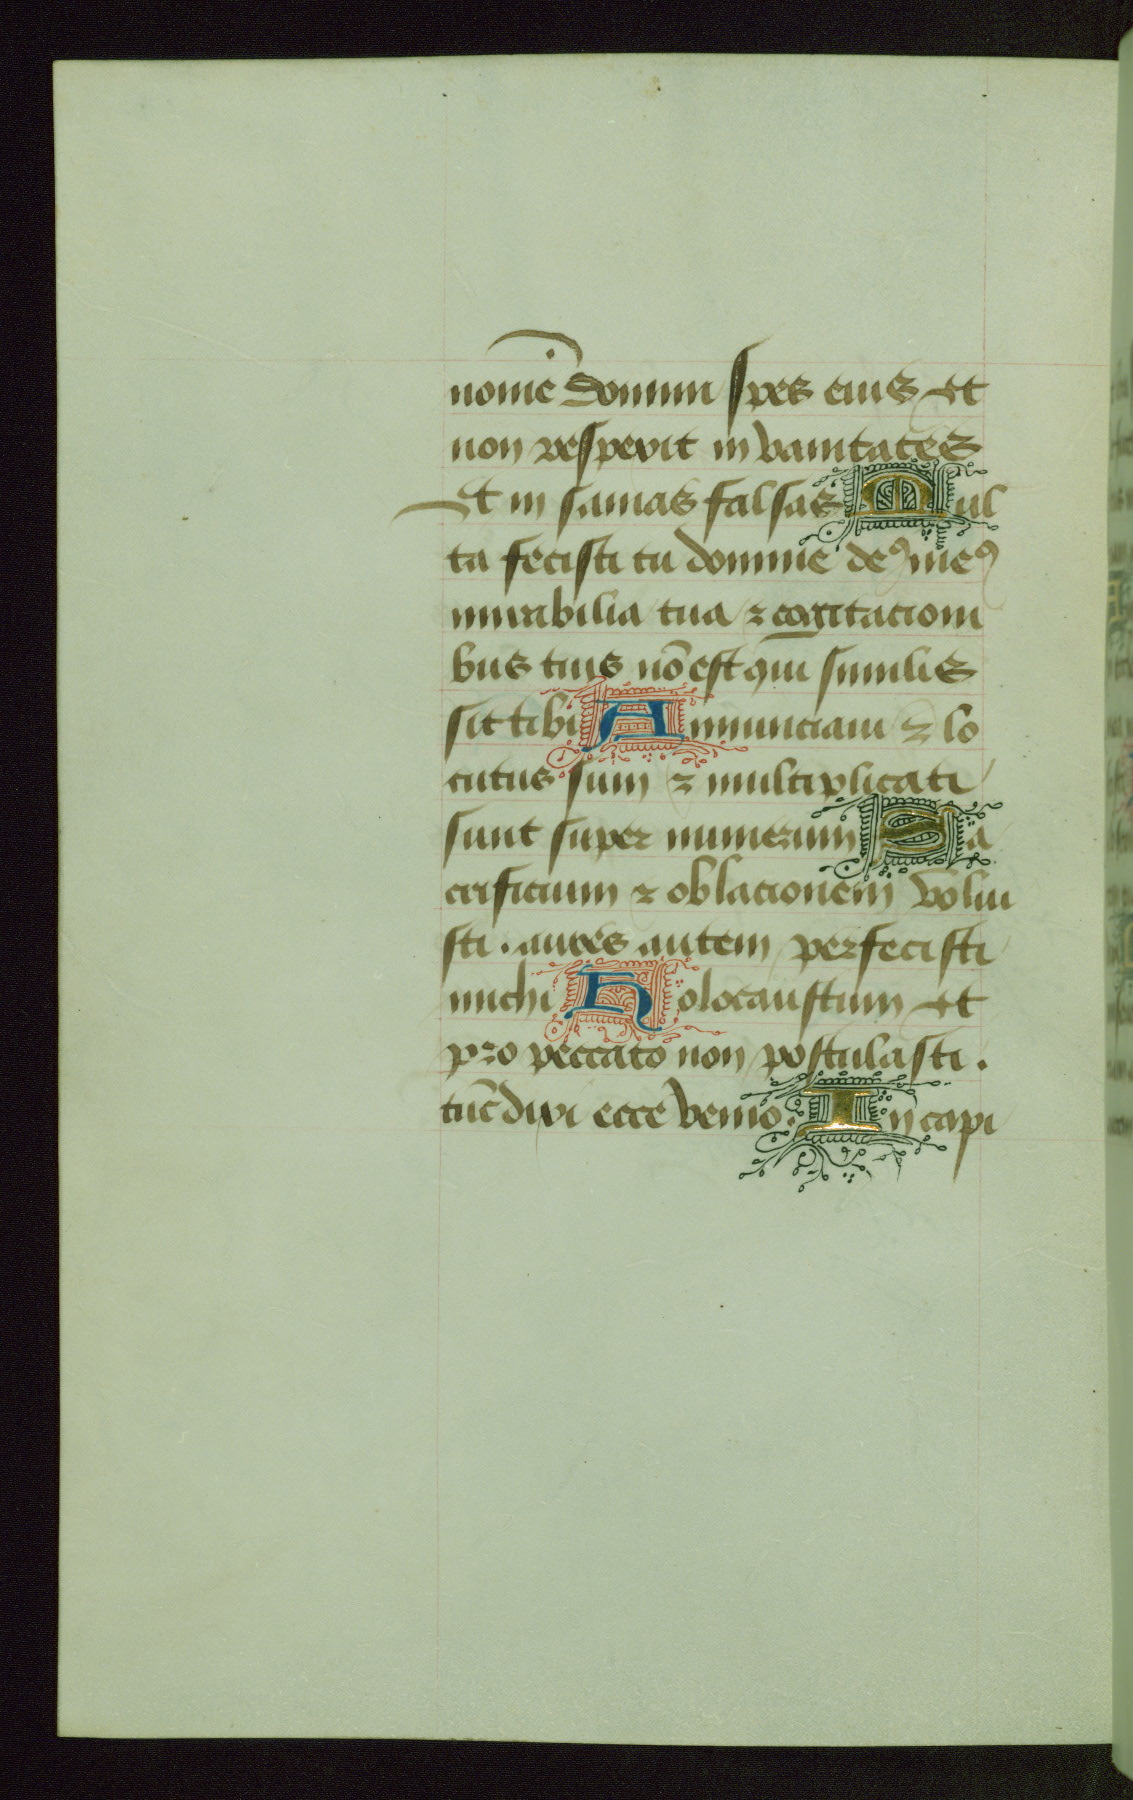 nomē domini spes eius et
non respexit in vanitates
Et in sanias falsas Mul
ta fecisti tu domine deꝰ meꝰ
mirabilia tua ⁊ cogitacioni
bus tuis nō est qui similis
sit tibi Annunciavi ⁊ lo
cutus sum ⁊ multiplicati
sunt super numerum Sa
crificium ⁊ oblacionem volui
sti . aures autem perfecisti
michi Holocaustum et
pro peccato non postulasti .
tūc dixi ecce venio . In capi